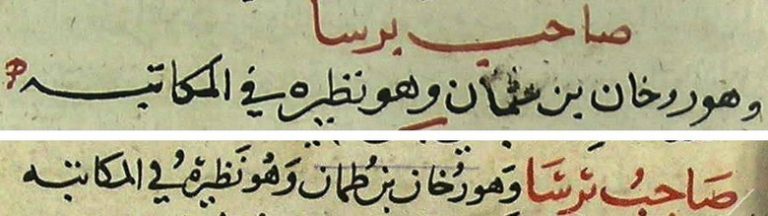 صاحب برسا
وهو روخان بن عثمان وهو نظيره في المكاتبه
صَاحبُ بَرسَا وَهو رُخان بن طمان وَهُو نَظيرهُ في المكاتبه